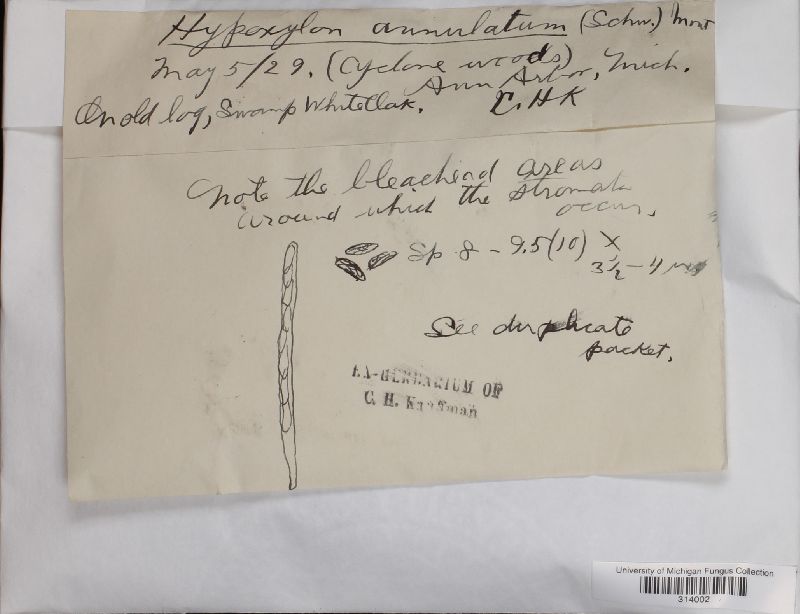 Hypoxylon annulatum (Schw.) Mont
May 5/29. (Cyclone woods)
Ann Arbor, Mich.
On old log, Swamp White Oak. C.H.K
Note the bleached areas
around which the stromata
occur.
Sp 8 - 9.5(10) X
3½ - 4 µ
See duplicate
packet.
EX-HERBARIUM OF
C. H. Kauffman
University of Michigan Fungus Collection
314002